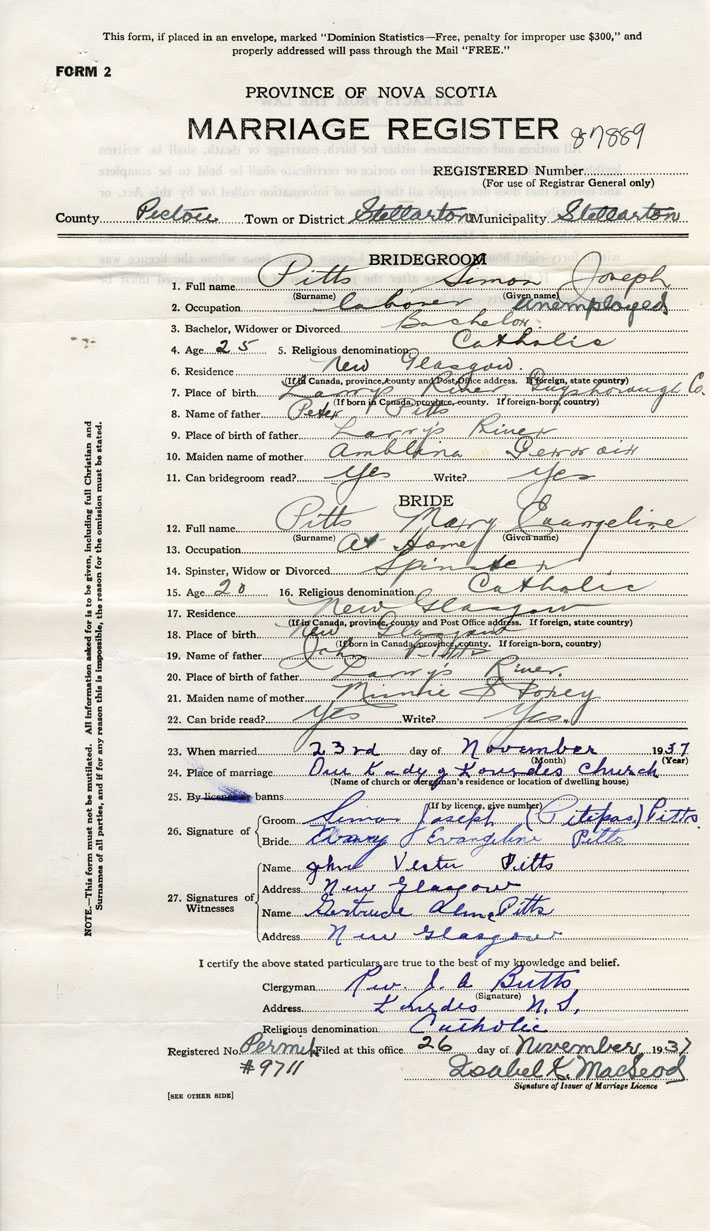 This form, if placed in an envelope, marked "Dominion Statistics—Free, penalty for improper use $300," and
properly addressed will pass through the Mail "FREE."
FORM 2
PROVINCE OF NOVA SCOTIA
MARRIAGE REGISTER 87889
REGISTERED Number
(For use of Registrar General only)
County Pictou Town or District Stellarton Municipality Stellarton
BRIDEGROOM
1. Full name Pitts Simon Joseph
(Surname) (Given name)
2. Occupation laborer unemployed
3. Bachelor, Widower or Divorced Bachelor
4. Age 25 5. Religious denomination Catholic
6. Residence New Glasgow
(If in Canada, province, county and Post Office address. If foreign, state country)
7. Place of birth Larry's River Guysborough Co.
(If born in Canada, province, county. If foreign-born, country)
8. Name of father Peter Pitts
9. Place of birth of father Larry's River
10. Maiden name of mother
11. Can bridegroom read? Yes Write? Yes
BRIDE
12. Full name Pitts Mary Evangeline
(Surname) (Given name)
13. Occupation At Home
14. Spinster, Widow or Divorced Spinster
15. Age 20 16. Religious denomination Catholic
17. Residence New Glasgow
(If in Canada, province, county and Post Office address. If foreign, state country)
18. Place of birth New Glasgow
(If born in Canada, province, county. If foreign-born, country)
19. Name of father John Pitts
20. Place of birth of father Larry's River
21. Maiden name of mother Minnie
22. Can bride read? Yes Write? Yes.
23. When married 23rd day of November 1937
(Month) (Year)
24. Place of marriage Our Lady of Lourdes Church
(Name of church or clergyman's residence or location of dwelling house)
25. By licence or banns
(If by licence, give number)
26. Signature of Groom Simon Joseph (Pitipas) Pitts
Bride Evangeline Pitts
27. Signatures of Witnesses
Name John Vester Pitts
Address New Glasgow
Name Gertrude Pitts
Address New Glasgow
I certify the above stated particulars are true to the best of my knowledge and belief.
Clergyman Rev. J. A. Butts
(Signature)
Address Lourdes N.S.
Religious denomination Catholic
Registered No. Permit Filed at this office 26 day of November 1937
#9711 Isabel K. MacLeod
Signature of Issuer of Marriage Licence
[SEE OTHER SIDE]
NOTE.—This form must not be mutilated. All information asked for is to be given, including full Christian and
Surnames of all parties, and if for any reason this is impossible, the reason for the omission must be stated.